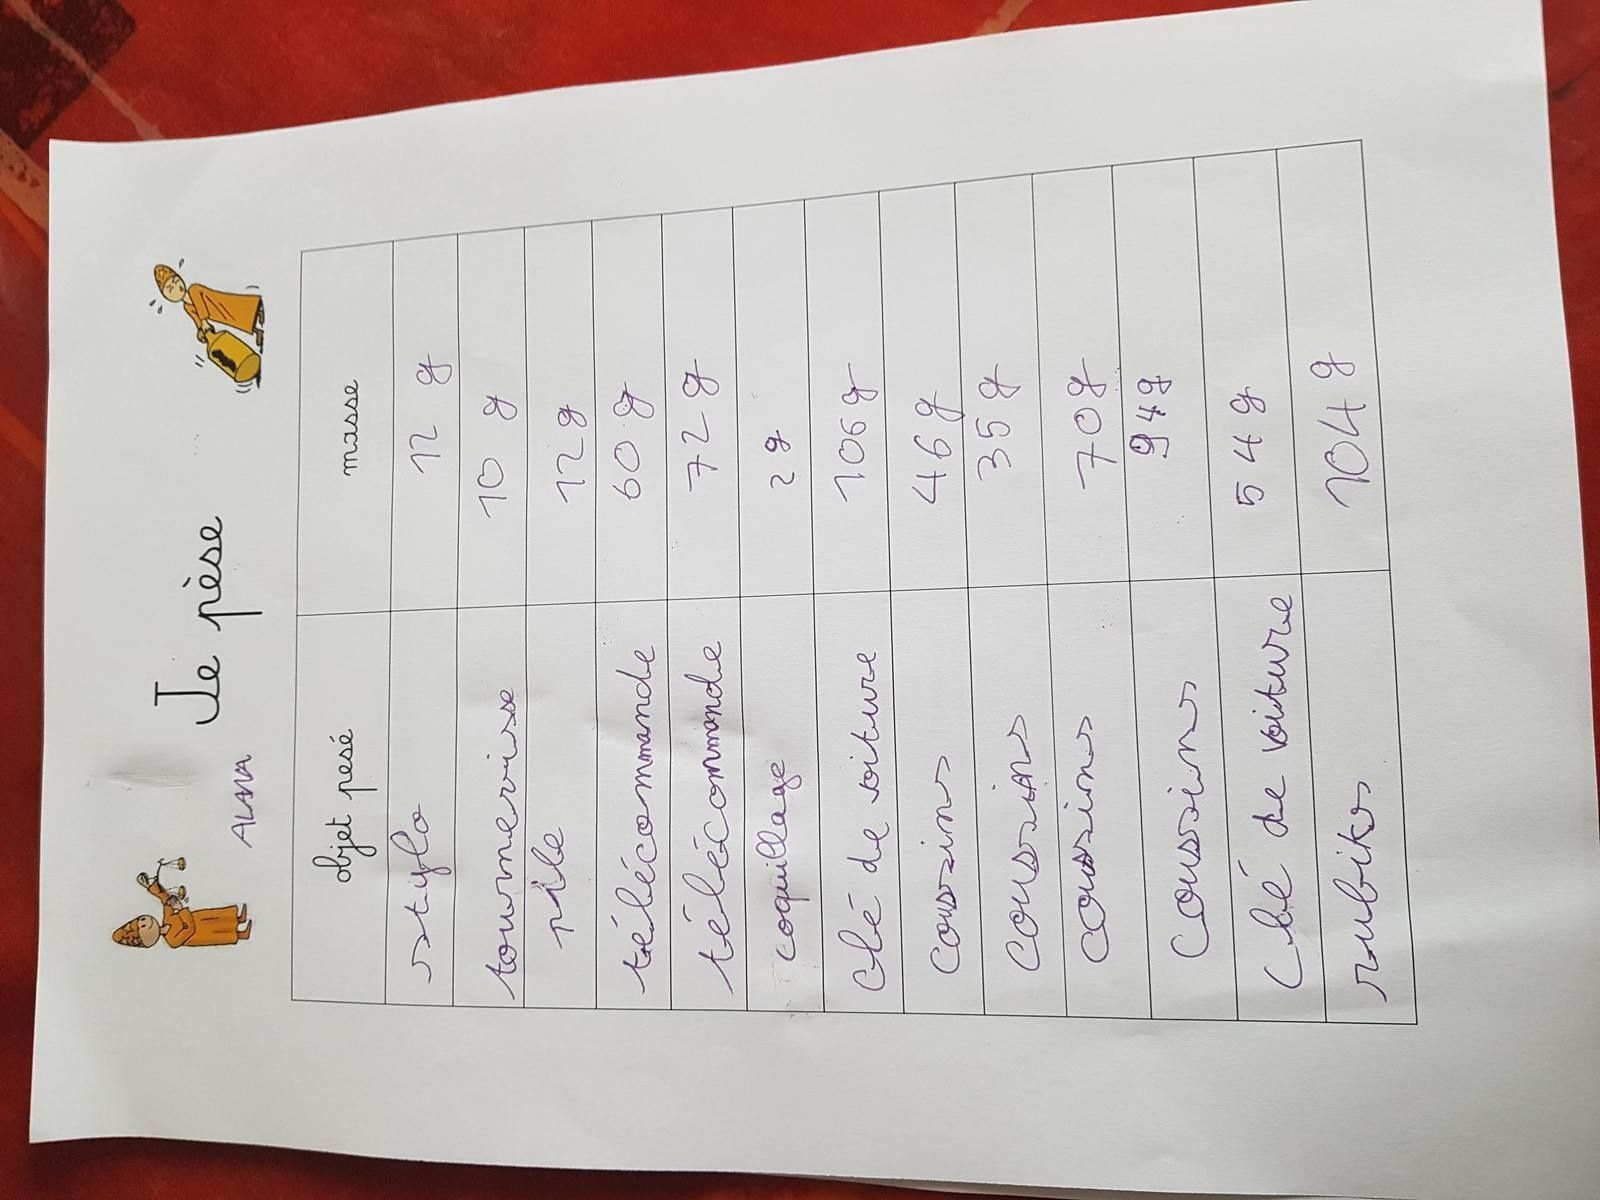 Je pèse
ALANA
objet pesé masse
stylo 12 g
tournevisse 10 g
pile 12 g
télécommande 60 g
télécommande 72 g
coquillage 2 g
clé de voiture 106 g
coussins 46 g
coussins 35 g
coussins 70 g
coussins 94 g
clé de voiture 54 g
rubiks 104 g